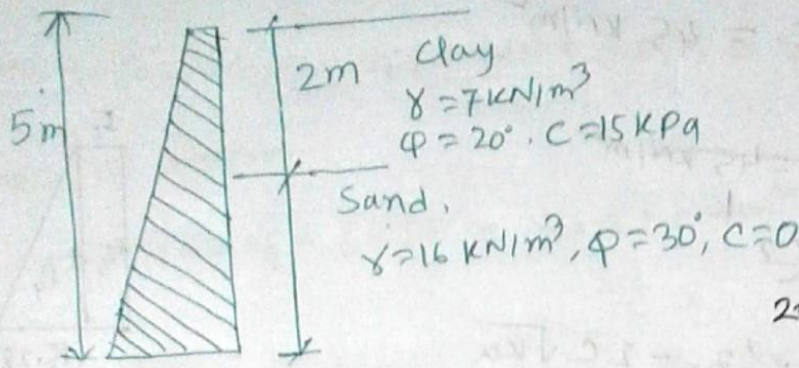 5m
2m
Clay
γ=7KN/m³
φ=20°. C=15KPa
Sand,
γ=16 KN/m³, φ=30°, C=0